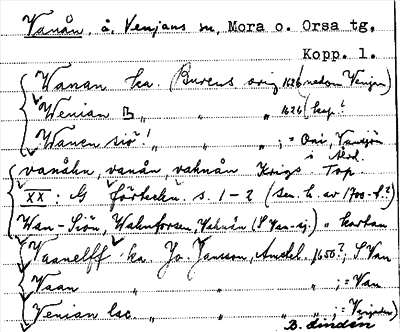 Vanån, å. Venjans sn, Mora o. Orsa tg,
Kopp. l.
Wanan ka. Bureus orig 1626 (nedom Venjan)
Wenian B „ „ „ 1626 (kap?
Wanen siö! „ „ „ ; = Oni, Vansjön
i Närd.
vanåhn, vanån, vahnån Krigs. Top.
XX: G förteckn. s. 1-2 (sen. h. av 1700-t.?)
Wan-Siön, Wahnforsen, Wahnån (S Van-sj.) „ kartan
Vaanelff ka. Jo. Jansson, Amstel. 1650?; S Van
Vaan „ „ „ ; = Van
Venian lac „ „ „ ; = Venjan)
B. Lindén